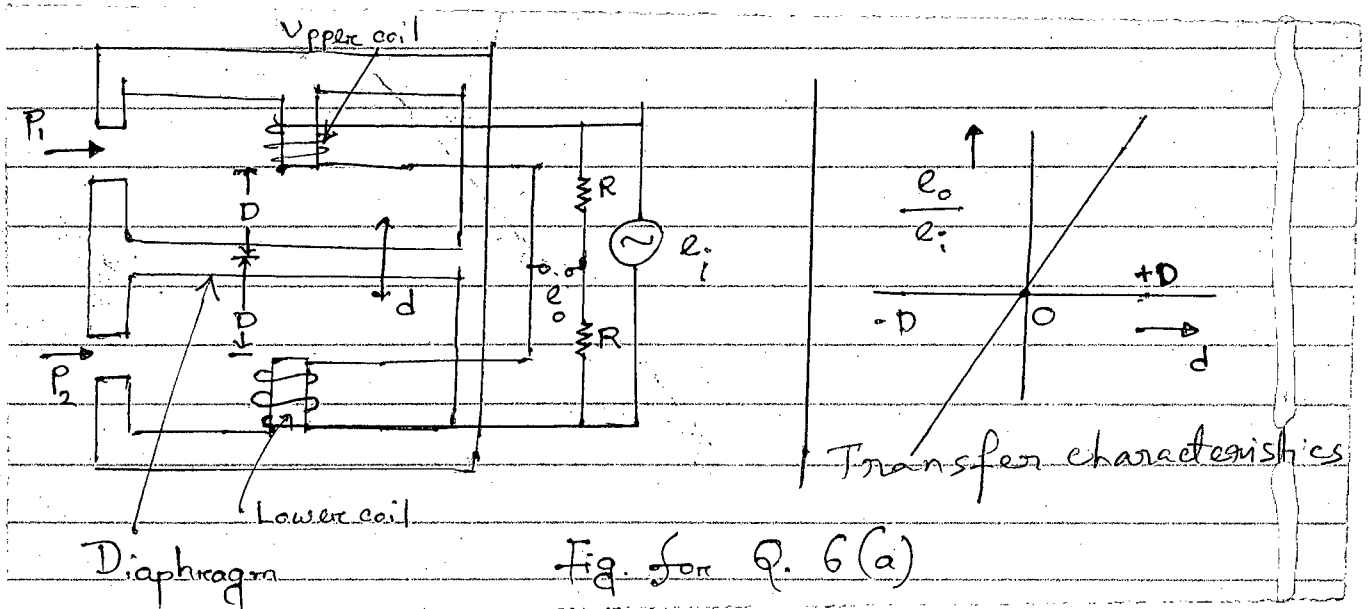 Upper coil
P1
D
R
d
e0
ei
D
R
P2
Lower coil
Diaphragm
e0
ei
-D
O
+D
d
Transfer characteristics
Fig. for Q. 6(a)